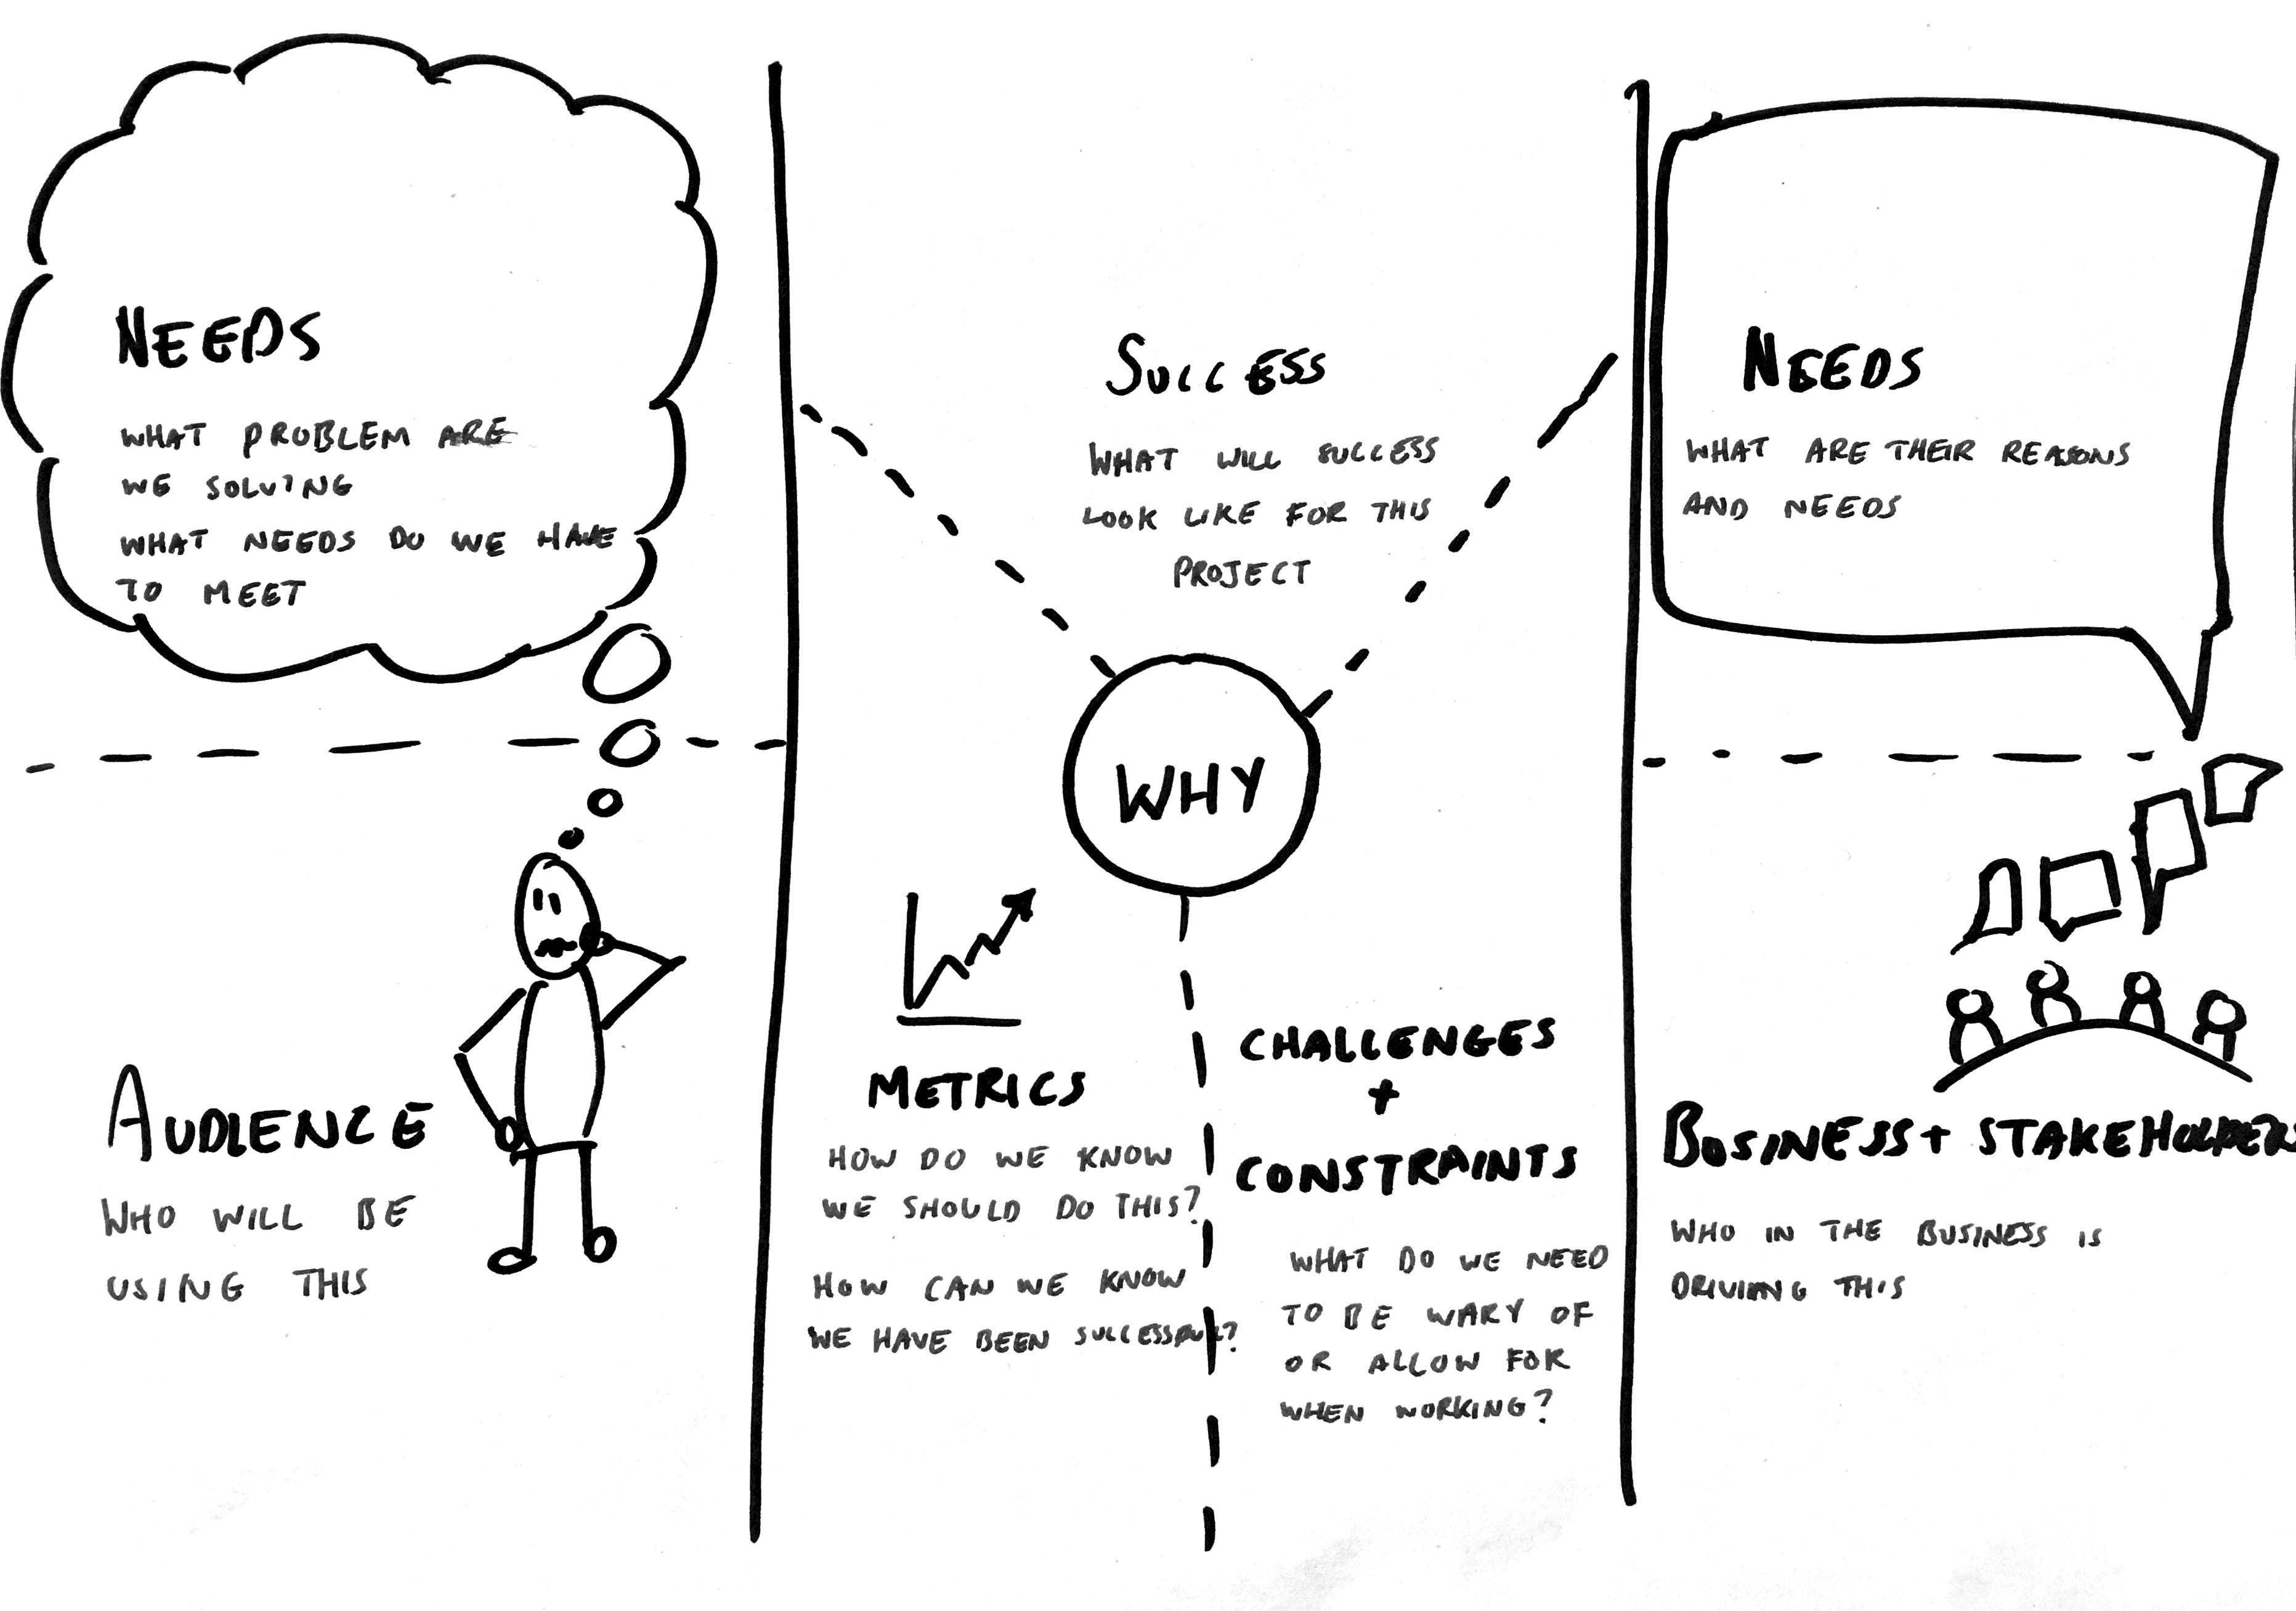 NEEDS
WHAT PROBLEM ARE
WE SOLVING
WHAT NEEDS DO WE HAVE
TO MEET
AUDIENCE
WHO WILL BE
USING THIS
SUCCESS
WHAT WILL SUCCESS
LOOK LIKE FOR THIS
PROJECT
WHY
METRICS
HOW DO WE KNOW
WE SHOULD DO THIS?
HOW CAN WE KNOW
WE HAVE BEEN SUCCESSFUL?
CHALLENGES
+
CONSTRAINTS
WHAT DO WE NEED
TO BE WARY OF
OR ALLOW FOR
WHEN WORKING?
NEEDS
WHAT ARE THEIR REASONS
AND NEEDS
BUSINESS + STAKEHOLDERS
WHO IN THE BUSINESS IS
DRIVING THIS